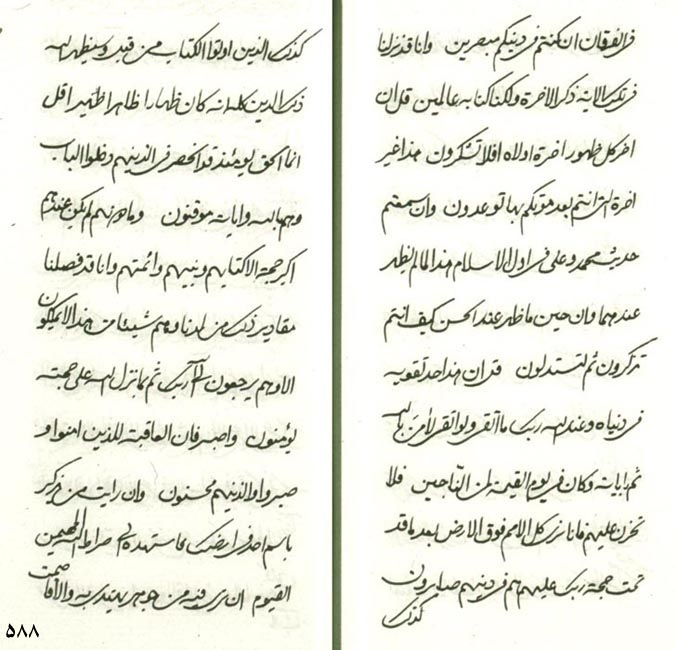 فی الفرقان ان كنتم فی دینكم مبصرین وانا قد نزلنا
فی تلك الایة ذكر الاخرة ولكنا كنا به عالمین قل ان
اخر كل ظهور اخرة اولاه افلا تشكرون هذا غیر
اخرة التی انتم بعد موتكم بها توعدون وان سمعتم
حدیث محمد وعلی فی اول الاسلام هذا لما لم یظهر
عندهما وان حین ما ظهر عند الحسن كیف انتم
تذكرون ثم لتستدلون قل ان هذا حد تقویه
فی دنیاه وعند الله ربك ما اتقی ولو اتقی لأمن بالله
ثم بایاته وكان فی یوم القیمة لمن الناجین فلا
تحزن علیهم فانا نری كل الامم فوق الارض بعد ما قد
تمت حجة ربك علیهم هم فی دینهم صابرون
كذلك
كذلك الذین اوتوا الكتاب من قبل وسیظهر الله
ذلك الدین كله انه كان ظهارا ظاهرا ظهیرا قل
انما الحق یومئذ قد انحصر فی الذینهم دخلوا الباب
وهم بالله وایاته موقنون وما دونهم لم یكن عندهم
اكبر حجة الا كتابهم ونبیهم وائمتهم وانا قد فصلنا
مقادیر ذلك من لدنا وهم شیئا من هذا لا یملكون
الا وهم یرجعون الی ربك ثم بما نزل الله علی حجته
یؤمنون واصبر فان العاقبة للذین امنوا و
صبروا والذینهم محسنون وان رایت من یذكر
باسم احد فی ارضك فاستهده الی صراط الله المهیمن
القیوم ان تری فیه من جوهر یهتدی به والا فاصمت
۵۸۸